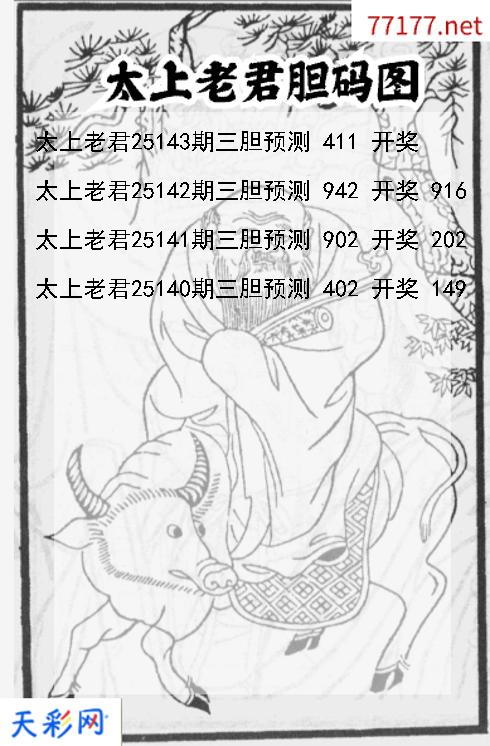 77177.net
太上老君胆码图
太上老君25143期三胆预测 411 开奖
太上老君25142期三胆预测 942 开奖 916
太上老君25141期三胆预测 902 开奖 202
太上老君25140期三胆预测 402 开奖 149
天彩网